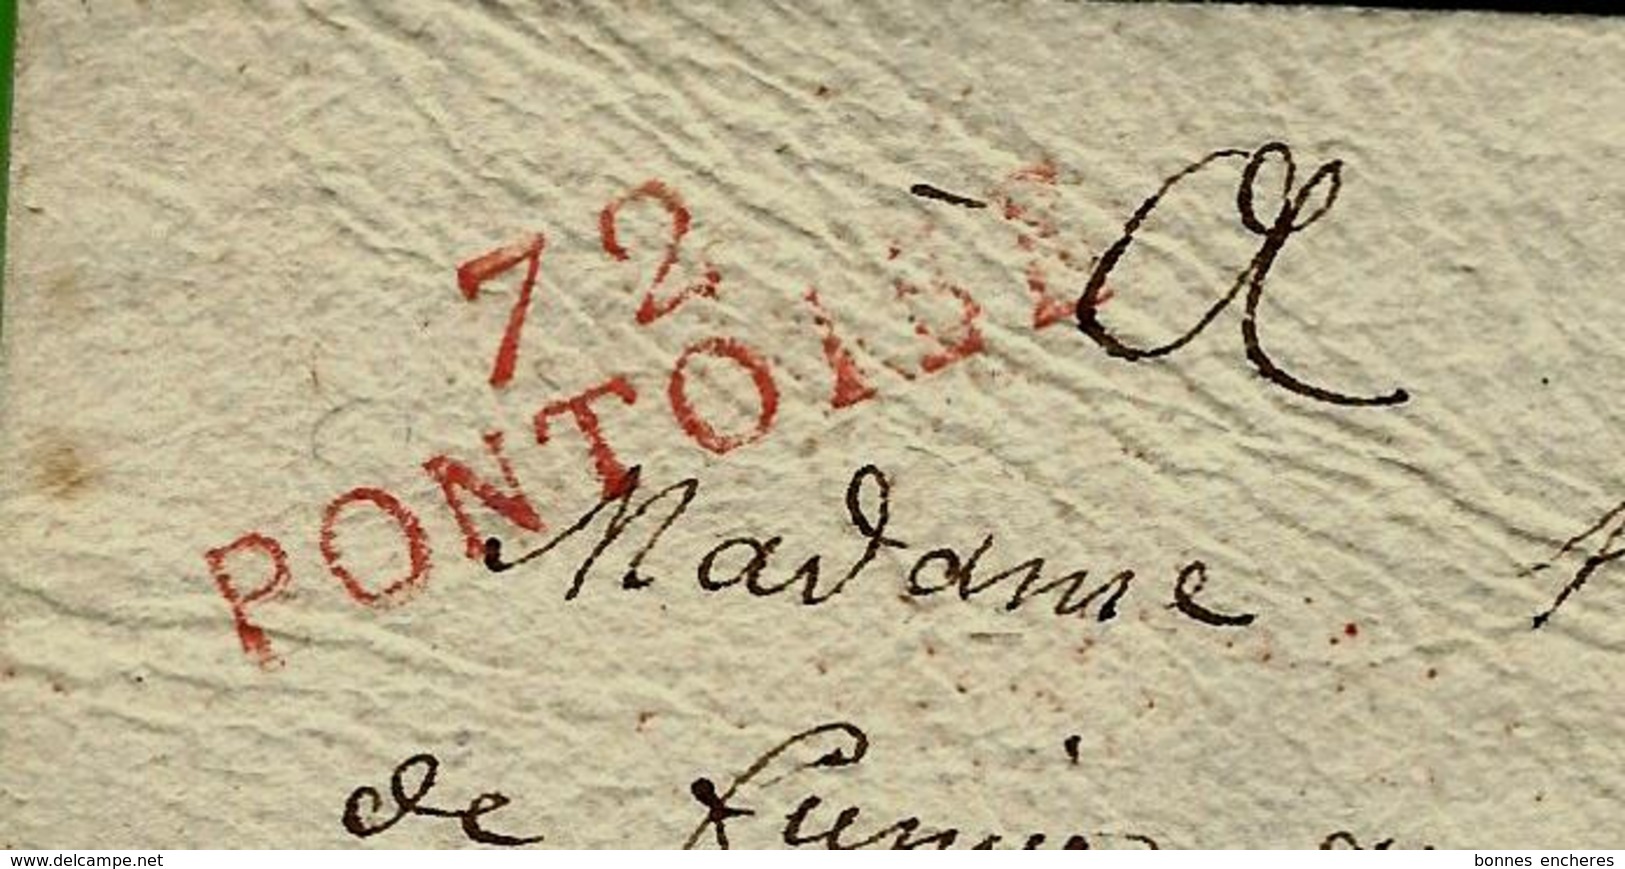 72
PONTOISE
A
Madame
de
www.delcampe.net
bonnes encheres